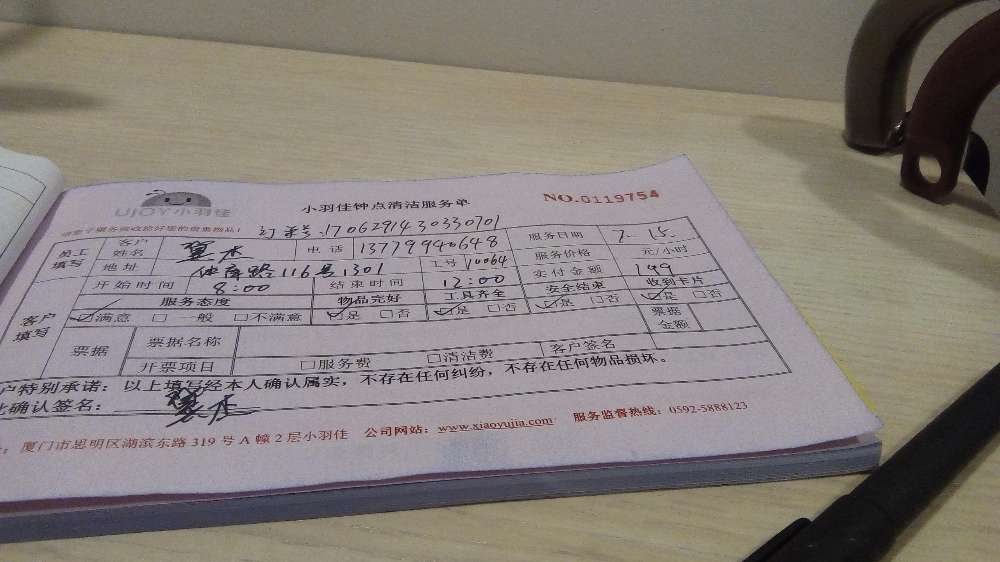 UJOY小羽佳 小羽佳钟点清洁服务单 NO.0119754
订单号.1706291430330701
员工填写 客户姓名 电话 13779940648 服务日期 7.15.
地址 体育路116号1301 工号 10064 服务价格 元/小时
开始时间 8:00 结束时间 12:00 实付金额 149
客户填写 服务态度 物品完好 工具齐全 安全结束 收到卡片
☑满意 □一般 □不满意 ☑是 □否 ☑是 □否 ☑是 □否 ☑是 □否
票据 票据名称 票据金额
开票项目 □服务费 □清洁费 客户签名
户特别承诺：以上填写经本人确认属实，不存在任何纠纷，不存在任何物品损坏。
确认签名：
厦门市思明区湖滨东路319号A幢2层小羽佳 公司网站：www.xiaoyujia.com 服务监督热线：0592-5888123